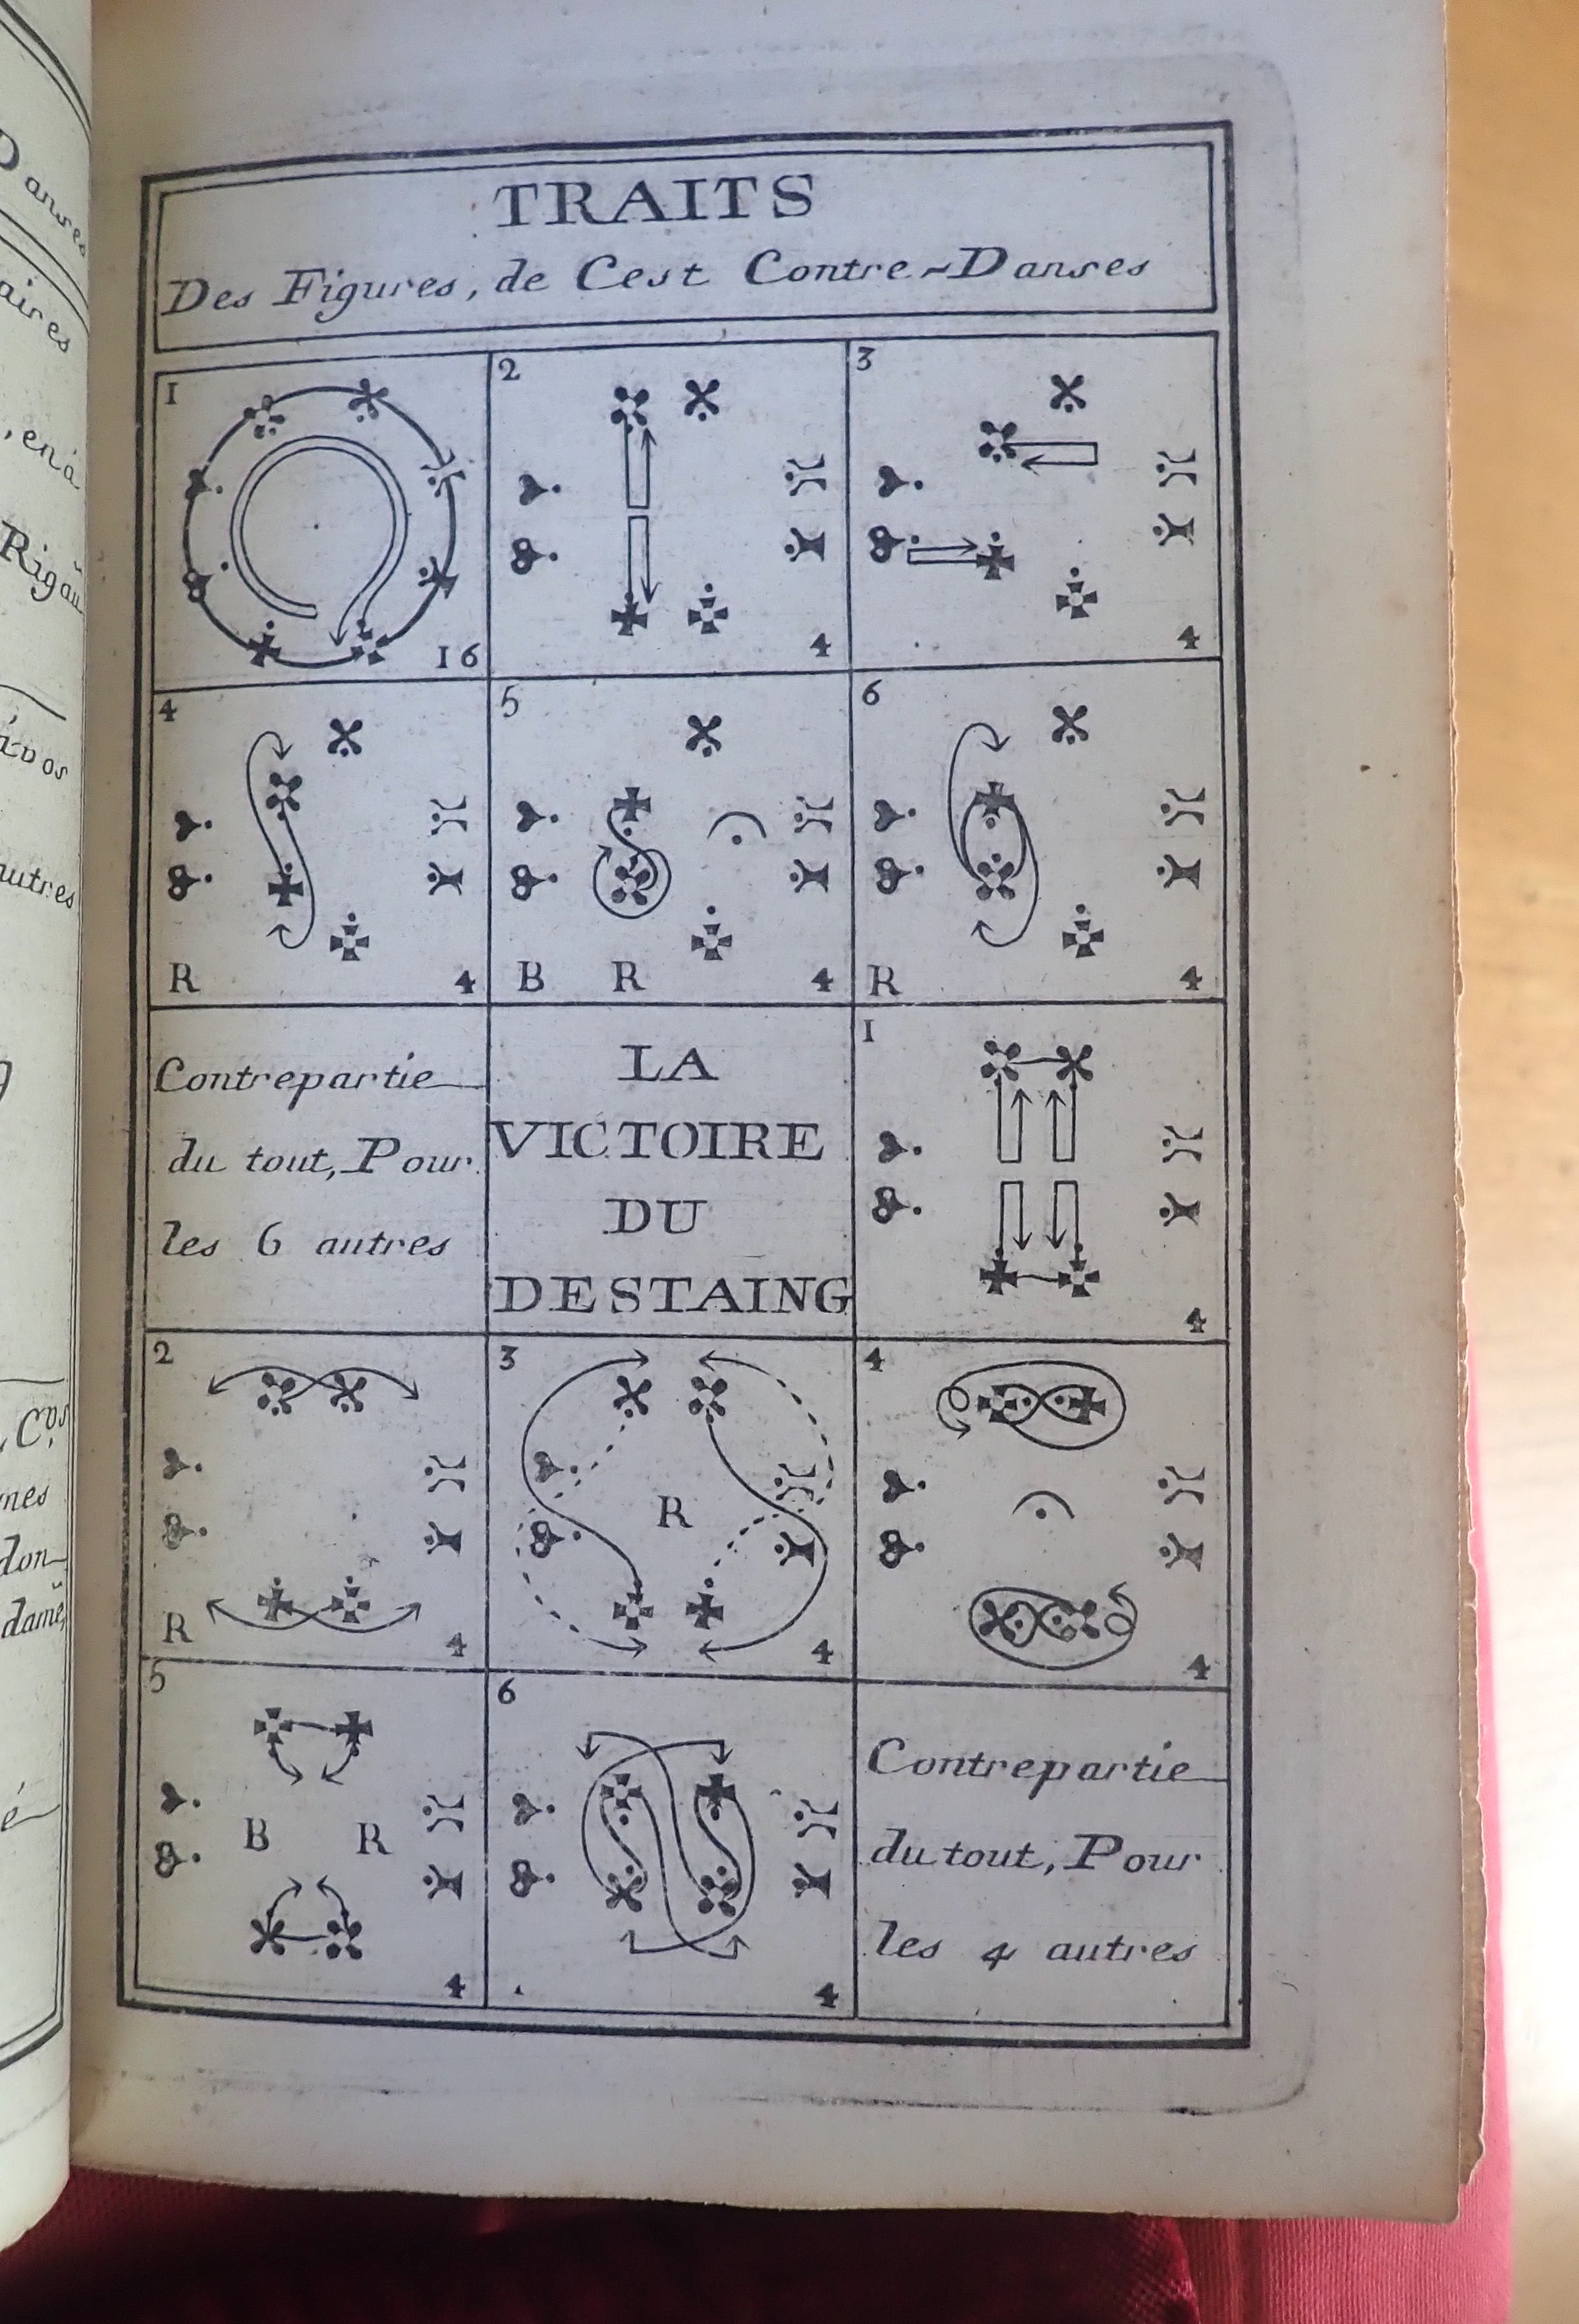 TRAITS
Des Figures, de Cest Contre-Danses
1
16
2
4
3
4
4
R
4
5
B R
4
6
R
4
Contrepartie
du tout, Pour
les 6 autres
LA
VICTOIRE
DU
DESTAING
1
4
2
R
4
3
R
4
4
4
5
B R
4
6
4
Contrepartie
du tout, Pour
les 4 autres
Danses
aires
Rigau
vos
autres